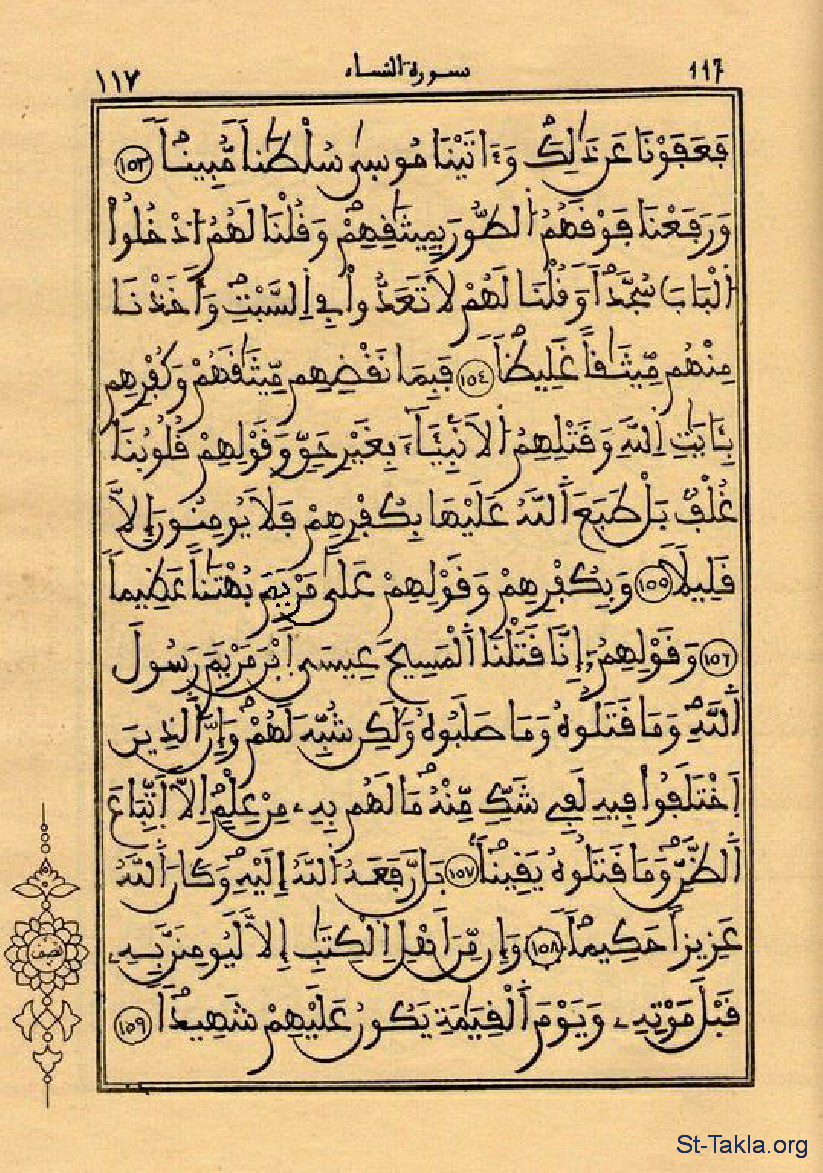 ١١٦ سورة النساء ١١٧
فَعَفَوْنَا عَن ذَٰلِكَ وَءَاتَيْنَا مُوسَىٰ سُلْطَٰناً مُّبِيناً ١٥٣
وَرَفَعْنَا فَوْقَهُمُ الطُّورَ بِمِيثَٰقِهِمْ وَقُلْنَا لَهُمُ ادْخُلُواْ
الْبَابَ سُجَّداً وَقُلْنَا لَهُمْ لَا تَعَدُّواْ فِي السَّبْتِ وَأَخَذْنَا
مِنْهُم مِّيثَٰقاً غَلِيظاً ١٥٤ فَبِمَا نَقْضِهِم مِّيثَٰقَهُمْ وَكُفْرِهِم
بِـَٔايَٰتِ اللَّهِ وَقَتْلِهِمُ الْأَنۢبِئَآءَ بِغَيْرِ حَقٍّ وَقَوْلِهِمْ قُلُوبُنَا
غُلْفٌ بَلْ طَبَعَ اللَّهُ عَلَيْهَا بِكُفْرِهِمْ فَلَا يُومِنُونَ إِلَّا
قَلِيلاً ١٥٥ وَبِكُفْرِهِمْ وَقَوْلِهِمْ عَلَىٰ مَرْيَمَ بُهْتَٰناً عَظِيماً
١٥٦ وَقَوْلِهِمُ إِنَّا قَتَلْنَا الْمَسِيحَ عِيسَى ابْنَ مَرْيَمَ رَسُولَ
اللَّهِ وَمَا قَتَلُوهُ وَمَا صَلَبُوهُ وَلَٰكِن شُبِّهَ لَهُمْ وَإِنَّ الذِينَ
اخْتَلَفُواْ فِيهِ لَفِي شَكٍّ مِّنْهُ مَا لَهُم بِهِۦ مِنْ عِلْمٍ اِلَّا اتِّبَاعَ
الظَّنِّ وَمَا قَتَلُوهُ يَقِيناً ١٥٧ بَل رَّفَعَهُ اللَّهُ إِلَيْهِ وَكَانَ اللَّهُ
عَزِيزاً حَكِيماً ١٥٨ وَإِن مِّنَ اَهْلِ الْكِتَٰبِ إِلَّا لَيُومِنَنَّ بِهِۦ
قَبْلَ مَوْتِهِۦ وَيَوْمَ الْقِيَٰمَةِ يَكُونُ عَلَيْهِمْ شَهِيداً ١٥٩
نصف
St-Takla.org